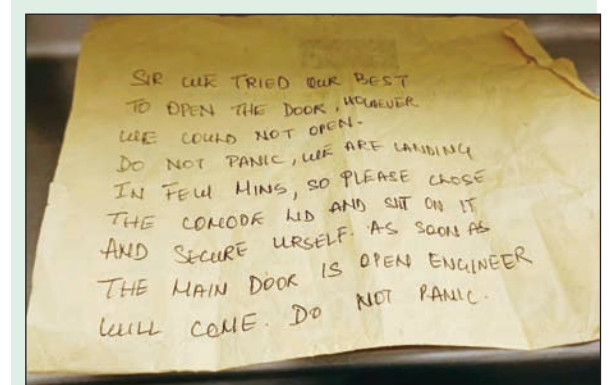 SIR WE TRIED OUR BEST
TO OPEN THE DOOR, HOWEVER
WE COULD NOT OPEN.
DO NOT PANIC, WE ARE LANDING
IN FEW MINS, SO PLEASE CLOSE
THE COMODE LID AND SIT ON IT
AND SECURE URSELF. AS SOON AS
THE MAIN DOOR IS OPEN ENGINEER
WILL COME. DO NOT PANIC.